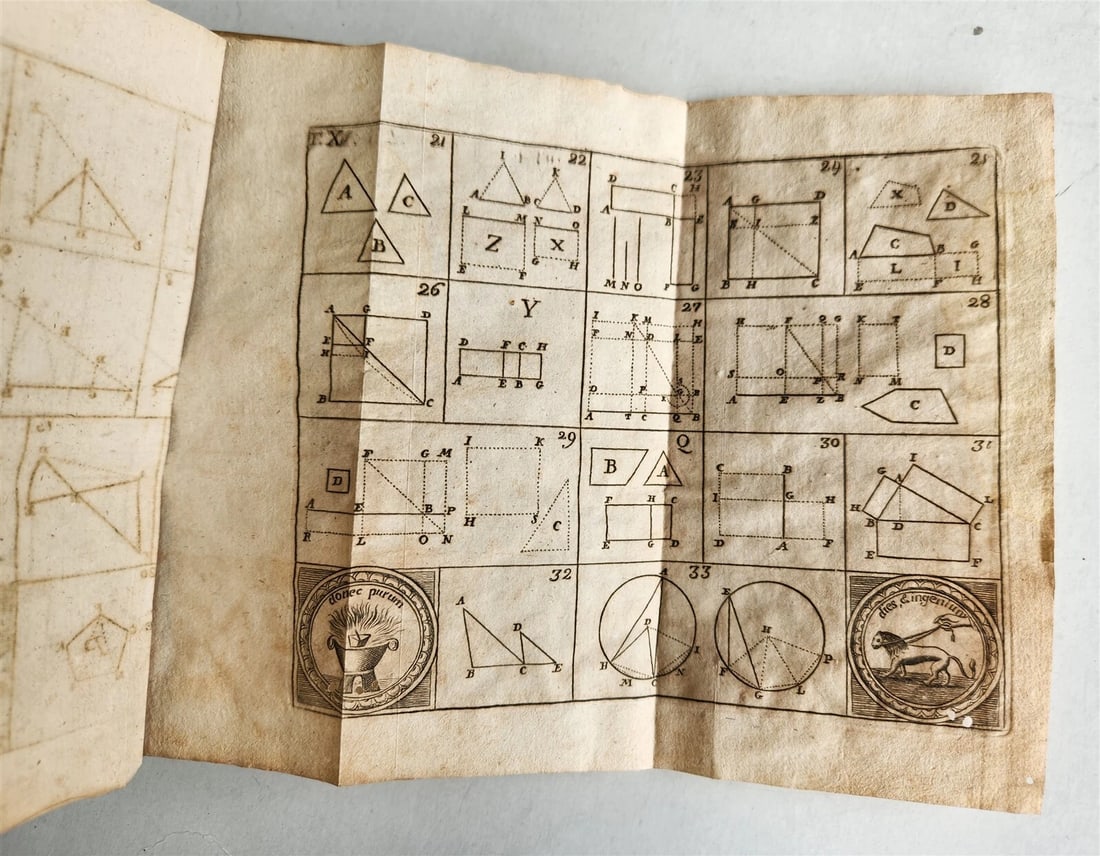 21
A
C
B
22
I
K
A
B
C
D
L
M
N
O
Z
X
E
F
G
H
23
D
C
H
A
B
E
M N O
F
G
24
A
G
D
S
I
Z
B
H
C
25
X
D
C
A
B
G
L
I
E
F
H
26
A
G
D
E
F
H
I
B
C
Y
D
F
C
H
A
E
B
G
27
I
K
M
H
F
N
D
L
E
O
P
A
T
C
Q
B
28
H
F
Q
G
K
T
D
S
O
P
R
N
M
A
E
Z
B
C
29
D
F
G
M
I
K
A
E
B
P
H
S
C
R
L
O
N
Q
B
A
F
H
C
E
G
D
30
C
B
I
G
H
D
A
F
31
I
G
A
L
H
B
D
C
E
F
donec purum
32
A
D
B
C
E
33
A
D
H
I
M
C
N
E
H
F
P
G
L
dies, & ingenium